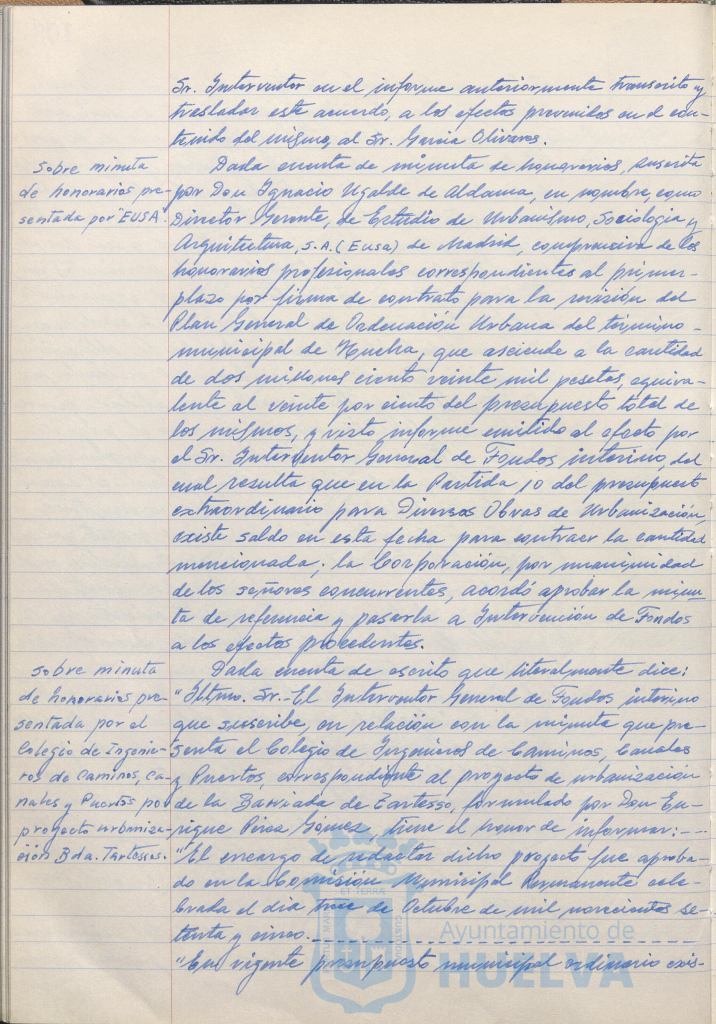 Sr. Interventor en el informe anteriormente transcrito y
trasladar este acuerdo, a los efectos prevenidos en el con-
tenido del mismo, al Sr. Garcia Olivares.
Sobre minuta
de honorarios pre-
sentada por "EUSA.
Dada cuenta de minuta de honorarios, suscrita
por Don Ignacio Ugalde de Aldama, en nombre, como
Director Gerente, de Estudio de Urbanismo, Sociologia y
Arquitectura, S.A. (Eusa) de Madrid, comprensiva de los
honorarios profesionales correspondientes al primer-
plazo por firma de contrato para la revisión del
Plan General de Ordenación Urbana del término-
municipal de Huelva, que asciende a la cantidad
de dos millones ciento veinte mil pesetas, equiva-
lente al veinte por ciento del presupuesto total de
los mismos, y visto informe emitido al efecto por
el Sr. Interventor General de Fondos interino, del
cual resulta que en la Partida 10 del presupuesto
extraordinario para Diversas Obras de Urbanización,
existe saldo en esta fecha para contraer la cantidad
mencionada; la Corporación, por unanimidad
de los señores concurrentes, acordó aprobar la minu-
ta de referencia y pasarla a Intervención de Fondos
a los efectos procedentes.
Sobre minuta
de honorarios pre-
sentada por el
Colegio de Ingenie-
ros de Caminos, Ca-
nales y Puertos por
proyecto urbaniza-
ción Bda. Tartessos.
Dada cuenta de escrito que literalmente dice:
"Iltmo. Sr.- El Interventor General de Fondos interino
que suscribe, en relación con la minuta que pre-
senta el Colegio de Ingenieros de Caminos, Canales
y Puertos, correspondiente al proyecto de urbanización
de la Barriada de Tartesso, formulado por Don En-
rique Pérez Gómez, tiene el honor de informar:-—
"El encargo de redactar dicho proyecto fue aproba-
do en la Comisión Municipal Permanente cele-
brada el dia trece de Octubre de mil novecientos se-
tenta y cinco.
"En vigente presupuesto municipal ordinario exis-
Ayuntamiento de
HUELVA